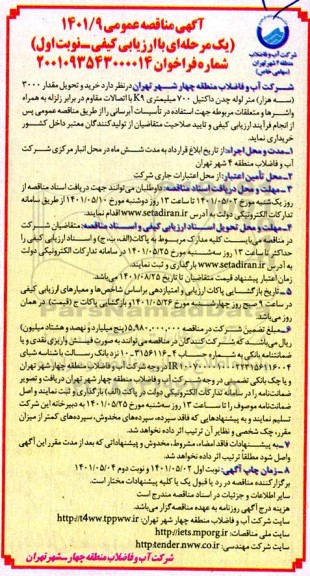 آگهی مناقصه عمومی ۱۴۰۱/۹
(یک مرحله‌ای با ارزیابی کیفی-نوبت اول)
شماره فراخوان ۲۰۰۱۰۹۳۵۴۳۰۰۰۰۱۴
شرکت آب و فاضلاب
منطقه ۴ شهر تهران
(سهامی خاص)
شرکت آب و فاضلاب منطقه چهار شهر تهران در نظر دارد خرید و تحویل مقدار ۳۰۰۰
(سه هزار) متر لوله چدن داکتیل ۷۰۰ میلیمتری K۹ با اتصالات مقاوم در برابر زلزله به همراه
واشرها و متعلقات مربوطه جهت استفاده در تأسیسات آبرسانی را از طریق مناقصه عمومی پس
از انجام فرآیند ارزیابی کیفی و تایید صلاحیت متقاضیان از تولیدکنندگان معتبر داخل کشور
خریداری نماید.
۱-مدت و محل اجراء: از تاریخ ابلاغ قرارداد به مدت شش ماه در محل انبار مرکزی شرکت
آب و فاضلاب منطقه ۴ شهر تهران
۲-محل تأمین اعتبار: از محل اعتبارات جاری شرکت
۳-مهلت و محل دریافت اسناد مناقصه: داوطلبان می‌توانند جهت دریافت اسناد مناقصه از
روز یکشنبه مورخ ۱۴۰۱/۰۵/۰۲ تا ساعت ۱۳ روز دوشنبه مورخ ۱۴۰۱/۰۵/۱۰ از طریق سامانه
تدارکات الکترونیکی دولت به آدرس www.setadiran.ir اقدام نمایند.
۴-مهلت و محل تحویل اسناد ارزیابی کیفی و اسناد مناقصه: متقاضیان شرکت
در مناقصه می‌بایست کلیه مدارک مربوط به پاکات (الف، ب، ج) و اسناد ارزیابی کیفی را
حداکثر تا ساعت ۱۳ روز سه‌شنبه مورخ ۱۴۰۱/۰۵/۲۵ در سامانه تدارکات الکترونیکی دولت
به آدرس www.setadiran.ir بارگذاری و ثبت نمایند.
زمان اعتبار پیشنهاد قیمت متقاضیان تا تاریخ ۱۴۰۱/۰۸/۲۵ می‌باشد.
۵-تاریخ بازگشایی پاکات ارزیابی و امتیازدهی براساس شاخص‌ها و معیارهای ارزیابی کیفی
در ساعت ۹ صبح روز چهارشنبه مورخ ۱۴۰۱/۰۵/۲۶ و بازگشایی پاکات ج (قیمت) در همان
روز می‌باشد.
۶-مبلغ تضمین شرکت در مناقصه ۵,۹۸۰,۰۰۰,۰۰۰ (پنج میلیارد و نهصد و هشتاد میلیون)
ریال می‌باشد که شرکت کنندگان در مناقصه می‌توانند به صورت فیش واریزی نقدی و یا
ضمانتنامه بانکی به شماره حساب
در وجه شرکت آب و فاضلاب منطقه چهار شهر تهران
و یا چک بانکی تضمینی در وجه شرکت آب و فاضلاب منطقه چهار شهر تهران دریافت و تصویر
ضمانت‌نامه را در سامانه تدارکات الکترونیکی دولت در پاکت (الف) بارگذاری و ثبت نمایند و اصل
ضمانت‌نامه موصوف را تا ساعت ۱۳ روز سه‌شنبه مورخ ۱۴۰۱/۰۵/۲۵ به دبیرخانه این شرکت
تسلیم نمایند و به پیشنهادهایی که فاقد سپرده، سپرده‌های مخدوش، سپرده‌های کمتر از میزان
مقرر، چک شخصی و نظایر آن ترتیب اثر داده نخواهد شد.
۷-به پیشنهادات فاقد امضاء، مشروط، مخدوش و پیشنهاداتی که بعد از مدت مقرر این آگهی
واصل شود مطلقا ترتیب اثر داده نخواهد شد.
۸-زمان چاپ آگهی: نوبت اول ۱۴۰۱/۰۵/۰۲ و نوبت دوم ۱۴۰۱/۰۵/۰۴
برگزار کننده مناقصه در رد یا قبول یک یا کلیه پیشنهادات مختار است.
سایر اطلاعات و جزئیات در اسناد مناقصه مندرج است
هزینه درج آگهی روزنامه به عهده مناقصه‌گزار می‌باشد.
سایت شرکت آب و فاضلاب منطقه چهار شهر تهران: http://t4ww.tppww.ir
سایت ملی مناقصات: http://iets.mporg.ir
سایت شرکت مهندسی: http:tender.nww.co.ir
شرکت آب و فاضلاب منطقه چهار-شهر تهران